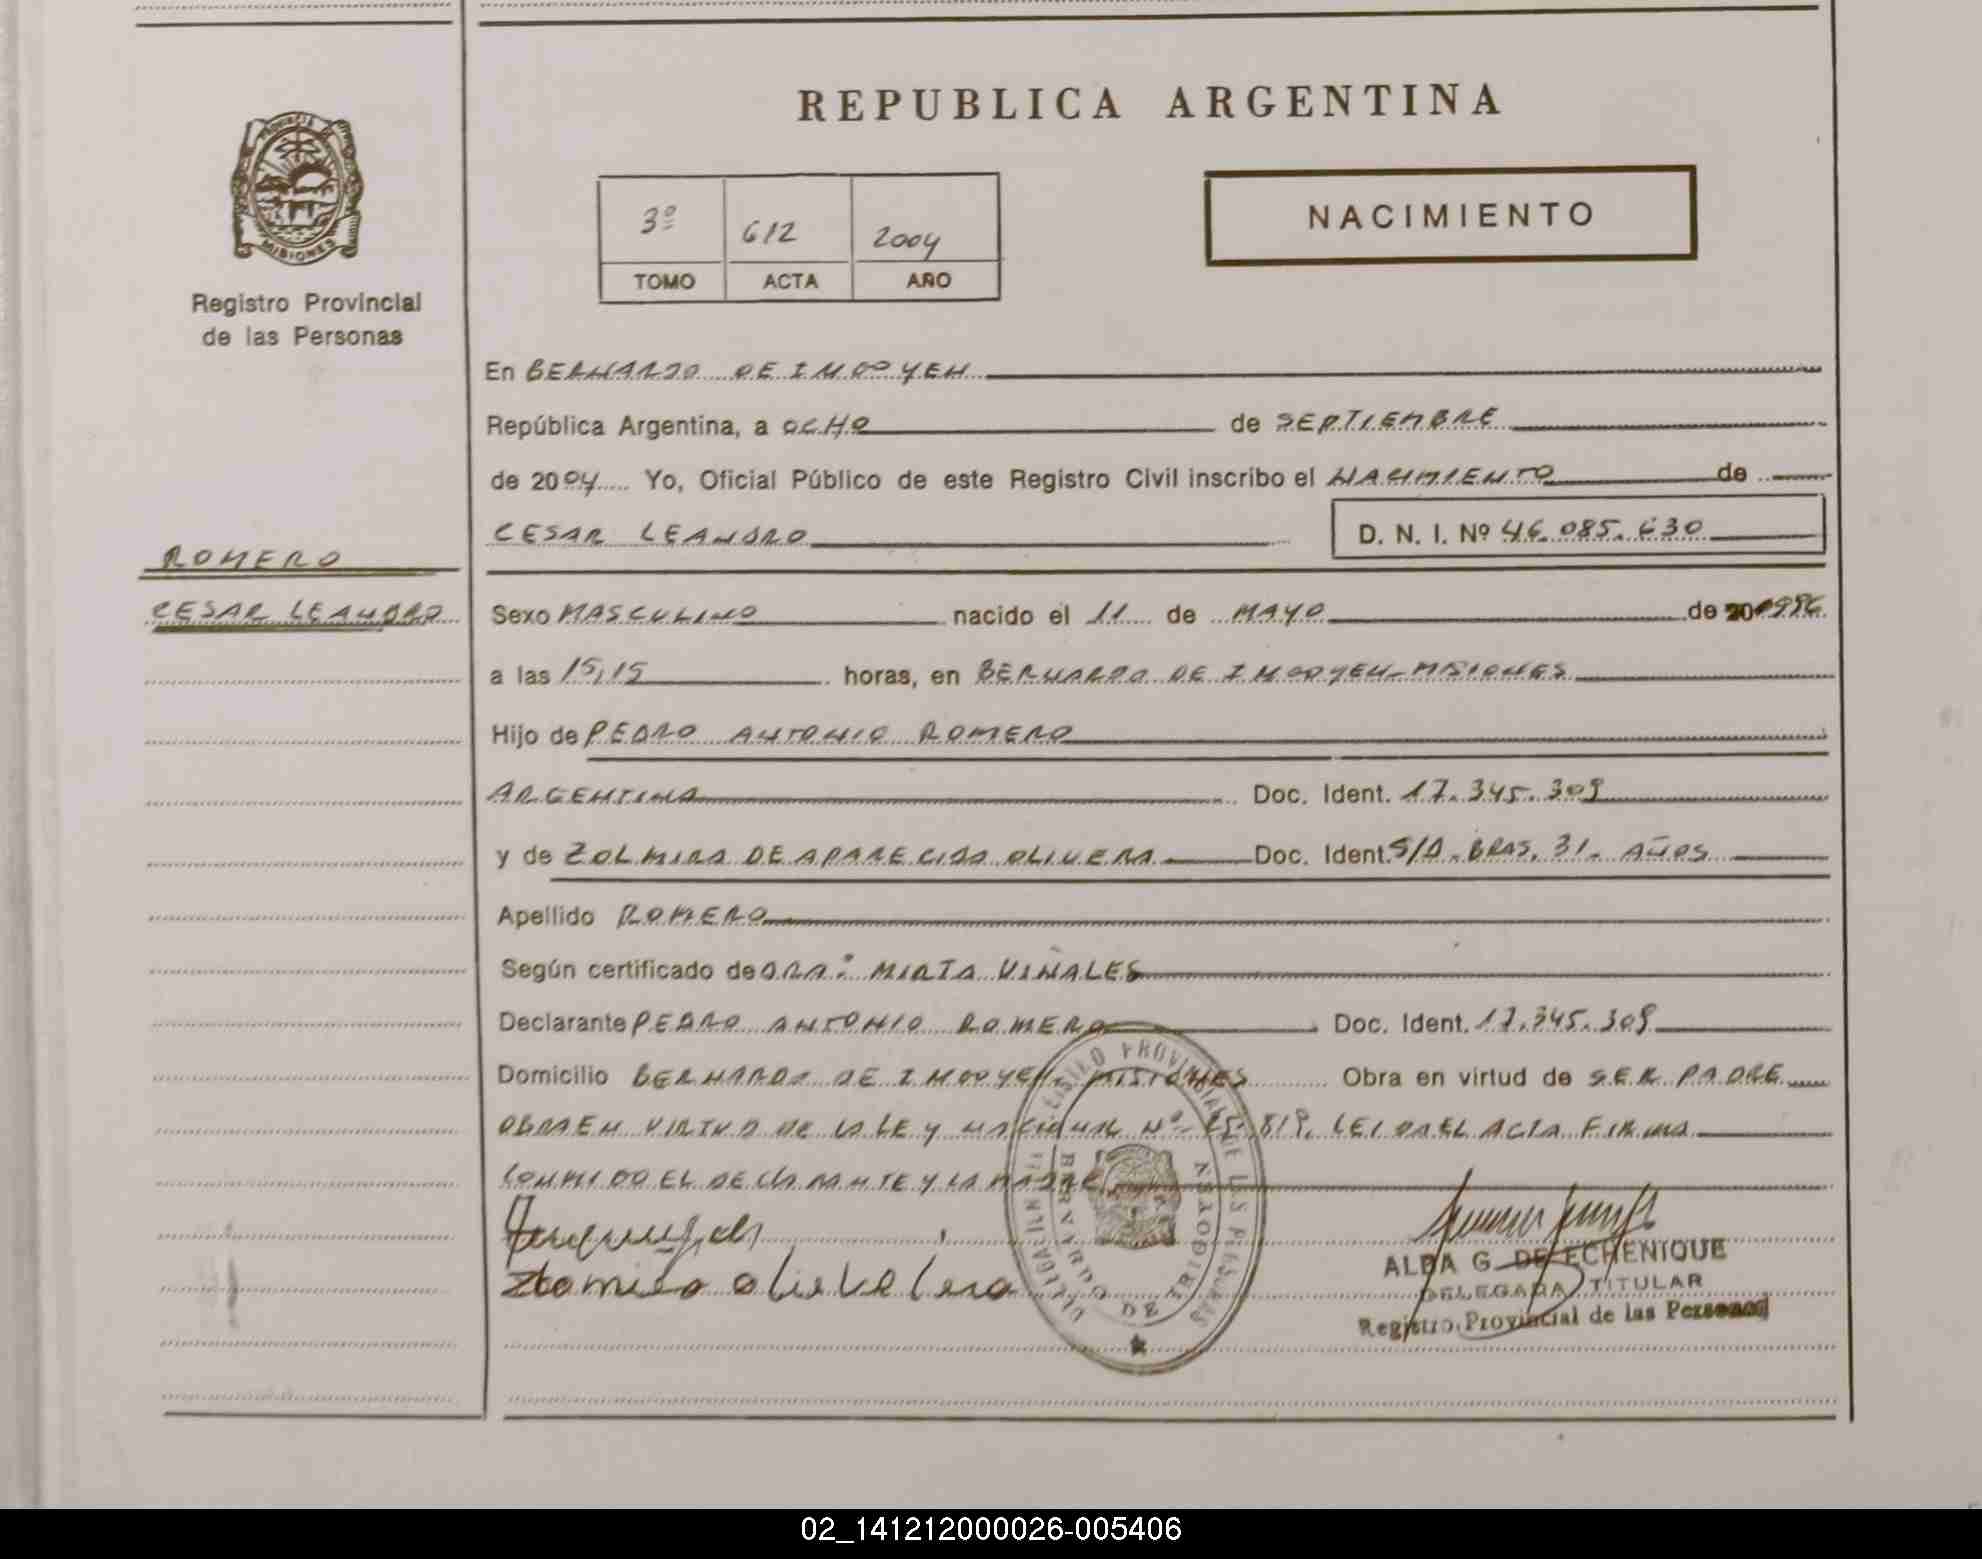 REPUBLICA ARGENTINA
PROVINCIA DE
MISIONES
Registro Provincial
de las Personas
3º 612 2004
TOMO ACTA AÑO
NACIMIENTO
En BERNARDO DE IRIGOYEN
República Argentina, a OCHO de SEPTIEMBRE
de 2004 Yo, Oficial Público de este Registro Civil inscribo el NACIMIENTO de
CESAR LEANDRO D. N. I. Nº 46.085.630
ROMERO
CESAR LEANDRO
Sexo MASCULINO nacido el 11 de MAYO de 1996
a las 15,15 horas, en BERNARDO DE IRIGOYEN-MISIONES
Hijo de PEDRO ANTONIO ROMERO
ARGENTINA Doc. Ident. 17.345.309
y de ZOLMIRA DE APARECIDA OLIVERA Doc. Ident. S/D. BRAS. 31. AÑOS
Apellido ROMERO
Según certificado de DRA: MIRTA VIÑALES
Declarante PEDRO ANTONIO ROMERO Doc. Ident. 17.345.309
Domicilio BERNARDO DE IRIGOYEN MISIONES Obra en virtud de SER PADRE
OBRA EN VIRTUD DE LA LEY NACIONAL Nº 25.819. LEIDA EL ACTA FIRMA
CONMIGO EL DECLARANTE Y LA MADRE
BERNARDO DE IRIGOYEN
ALBA G. DE ECHENIQUE
DELEGADA TITULAR
Registro Provincial de las Personas
02_141212000026-005406